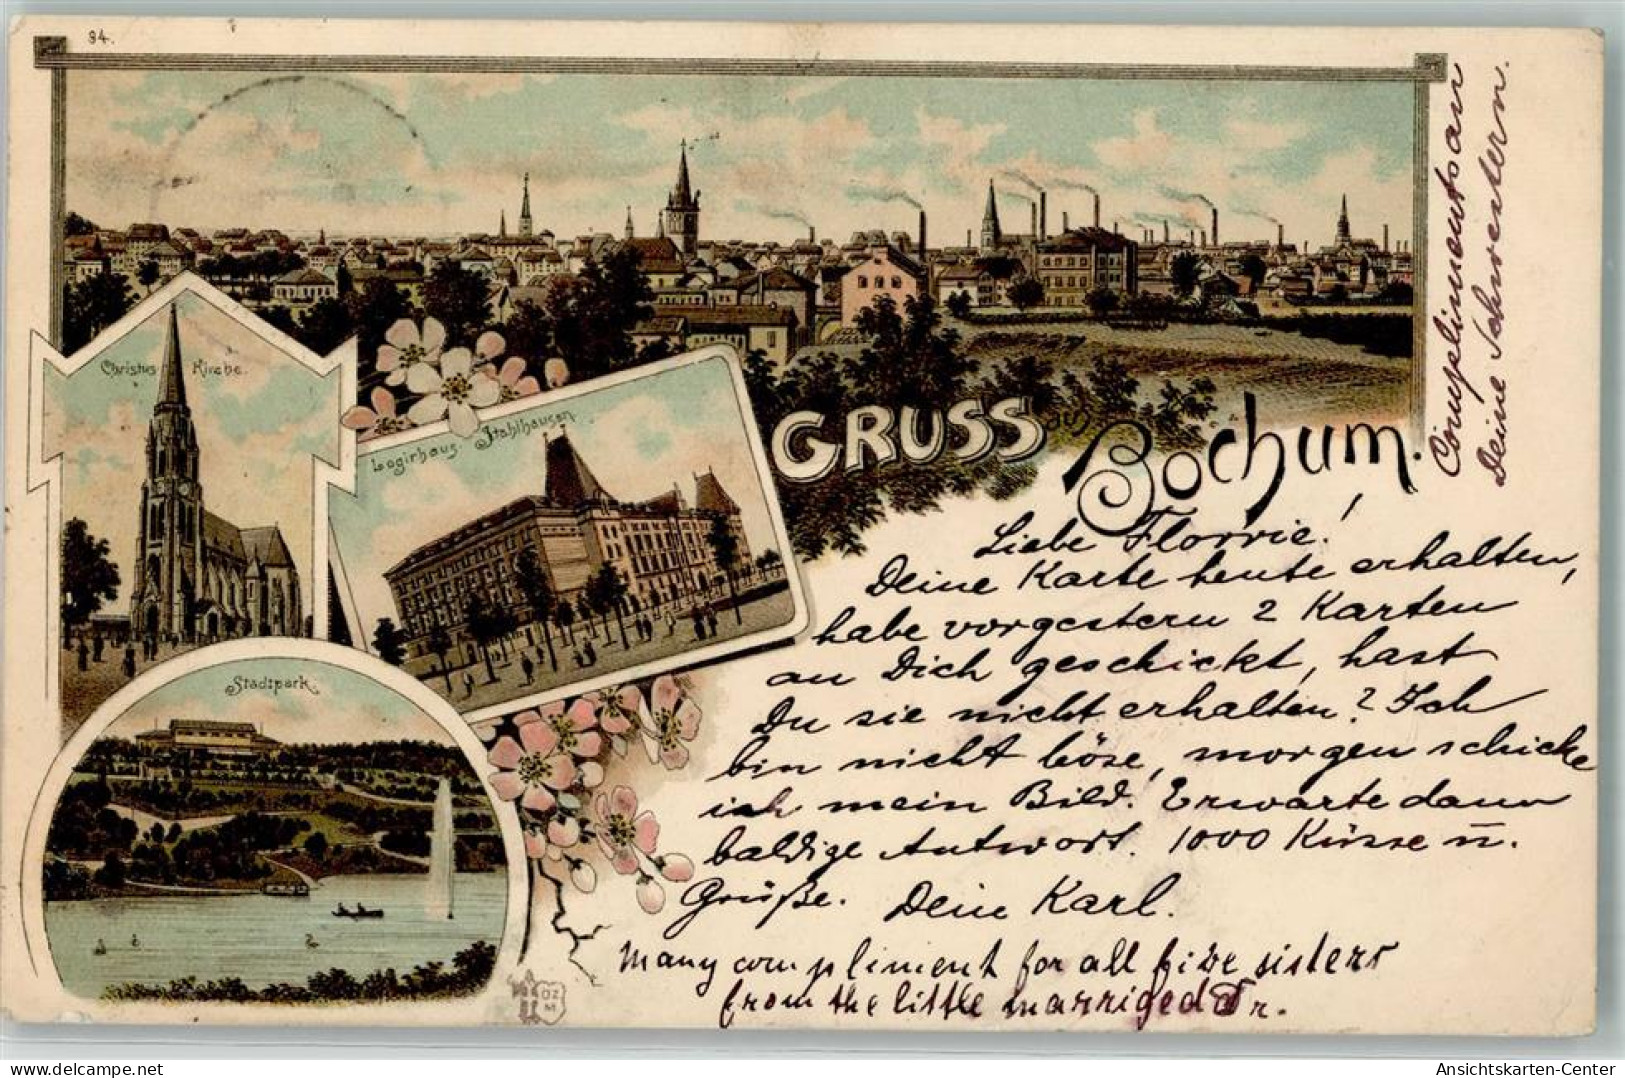 94.
Christus Kirche.
Logirhaus Stahlhausen
Stadtpark.
GRUSS aus Bochum.
Liebe Florrie!
Deine Karte heute erhalten,
habe vorgestern 2 Karten
an Dich geschickt, hast
Du sie nicht erhalten? Ich
bin nicht böse, morgen schicke
ich mein Bild. Erwarte dann
baldige Antwort. 1000 Küsse u.
Grüße. Dein Karl.
Many compliment for all five sisters
from the little marriged Dr.
Complimentsan
Deine Schwestern.
Ansichtskarten-Center